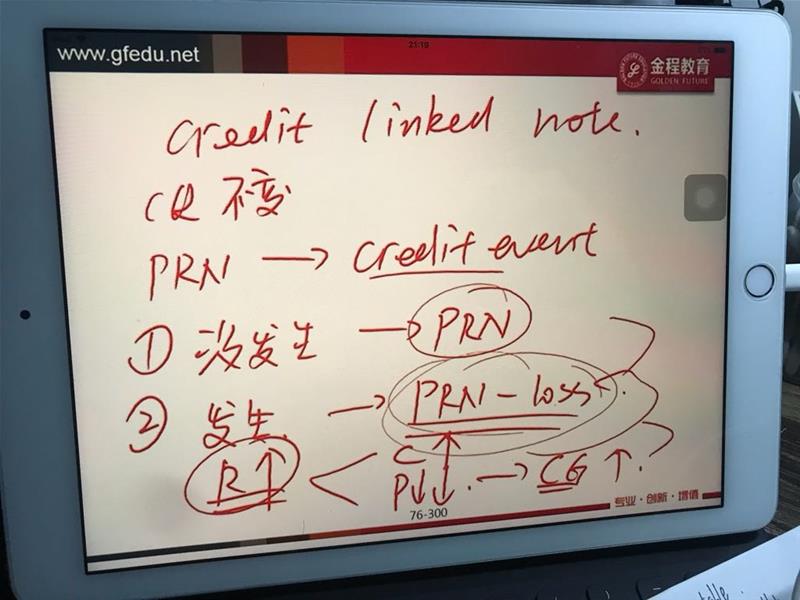 www.gfedu.net
21:19
金程教育
GOLDEN FUTURE
credit linked note.
不变
PRN → credit event
① 没发生 → PRN
② 发生 → PRN - loss
R↑ < C↑
P↓↓. → CG ↑.
专业·创新·增值
76-300